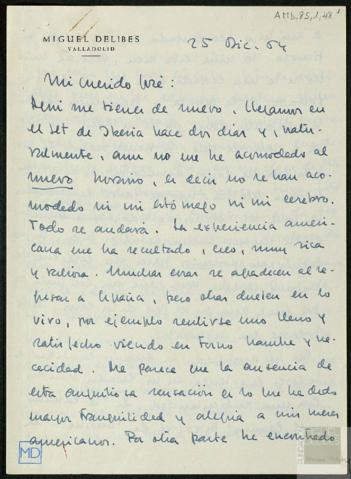 AMD,85,1,48
MIGUEL DELIBES
VALLADOLID
25 Dic. 64
Mi querido José:
Aquí me tienes de nuevo. Llegamos en
el Jet de Iberia hace dos días y, natu-
ralmente, aun no me he acomodado al
nuevo horario, es decir no se han aco-
modado ni mi estómago ni mi cerebro.
Todo se andará. La experiencia ameri-
cana me ha resultado, creo, muy rica
y valiosa. Muchas cosas se agradecen al re-
gresar a España, pero otras duelen en lo
vivo, por ejemplo sentirse uno lleno y
satisfecho viendo en torno hambre y ne-
cesidad. Me parece que la ausencia de
esta angustiosa sensación es lo que ha dado
mayor tranquilidad y alegría a mis meses
americanos. Por otra parte he encontrado
MD